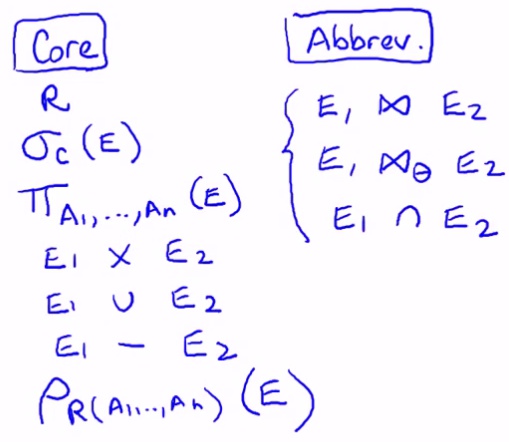 Core
R
σc (E)
ΠA1,...,An (E)
E1 × E2
E1 ∪ E2
E1 − E2
ρR(A1,...,An) (E)
Abbrev.
E1 ⋈ E2
E1 ⋈θ E2
E1 ∩ E2